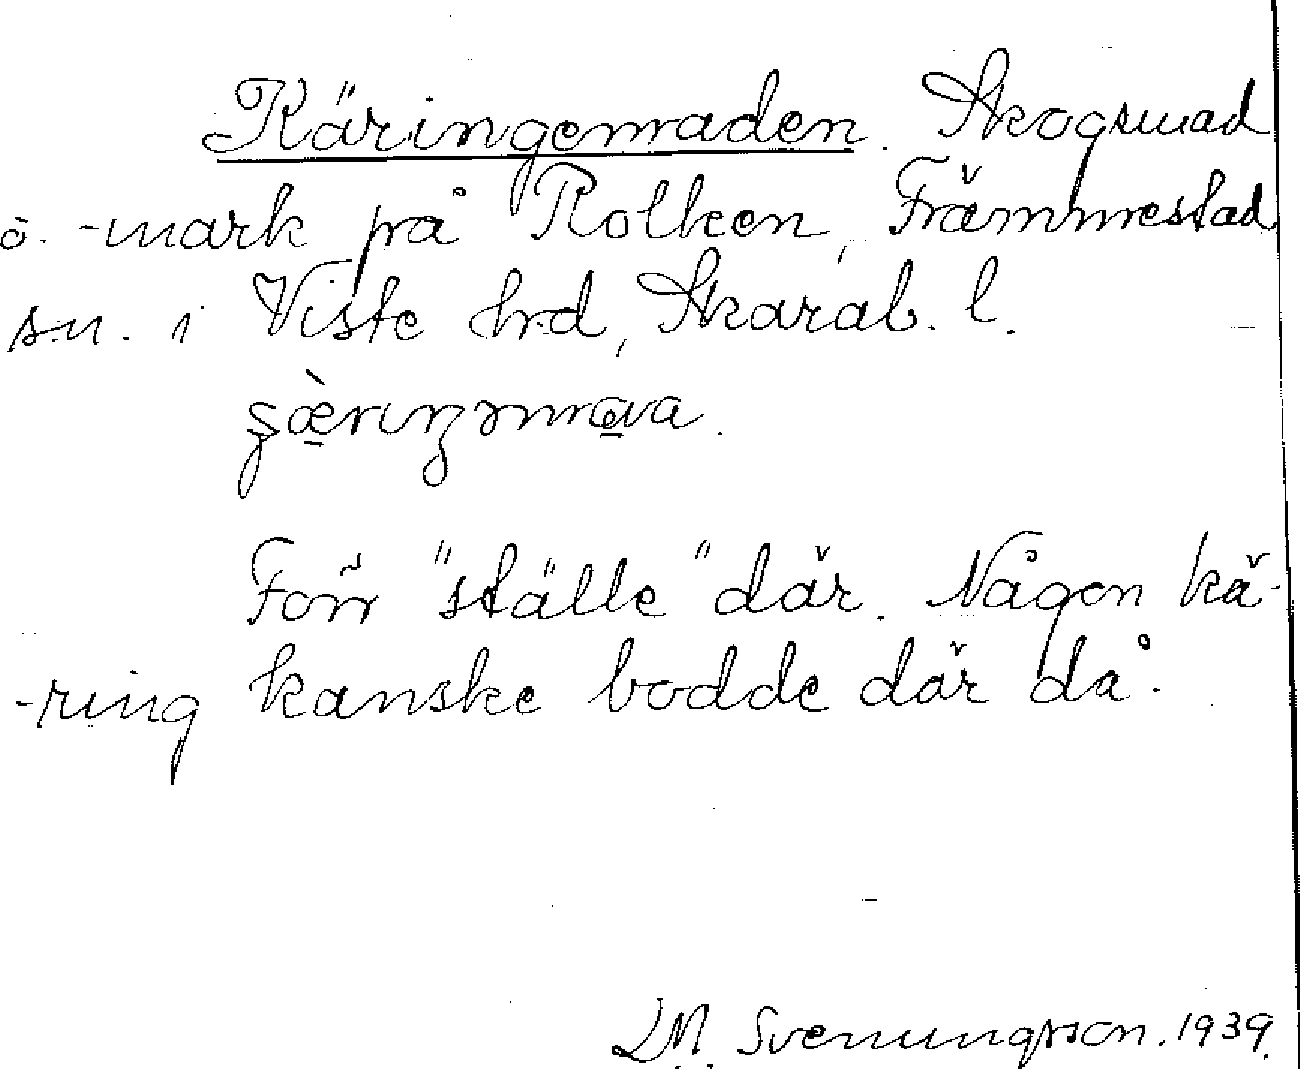 Käringemaden. Skogsmad
o. -mark på Rolken, Främmestad
sn. i Viste hrd, Skarab. l.
Förr "ställe" där. Någon kä-
-ring kanske bodde där då.
LM. Svenungsson. 1939.